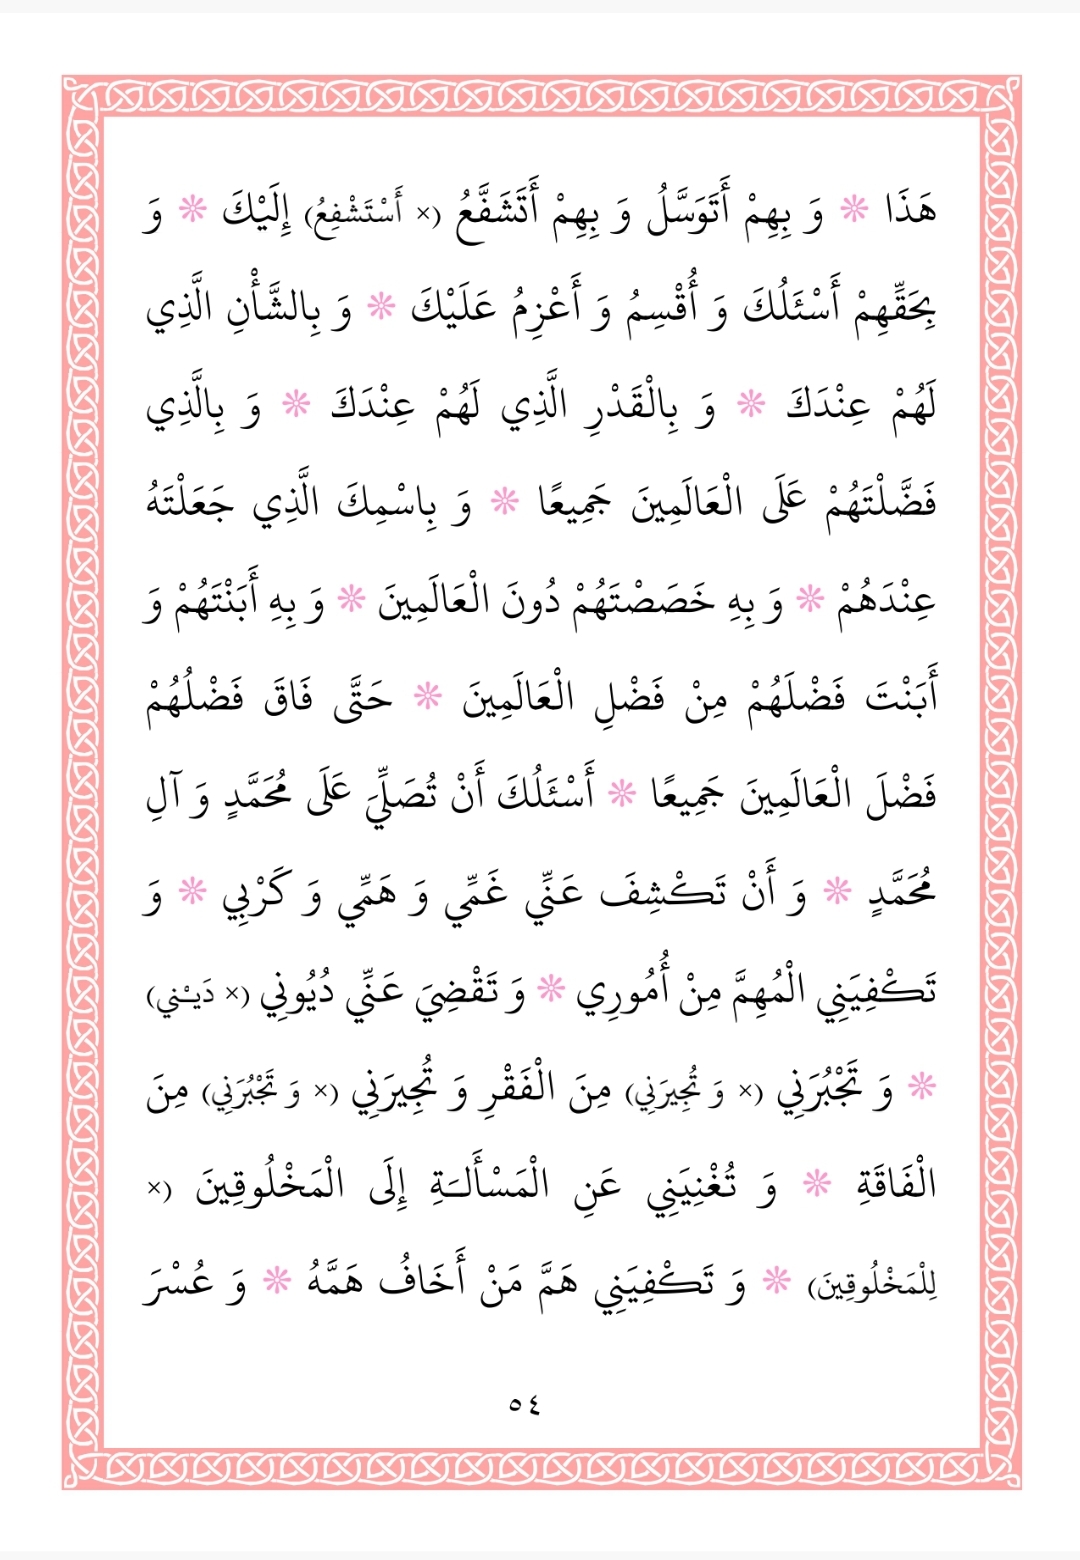 هَذَا ❊ وَ بِهِمْ أَتَوَسَّلُ وَ بِهِمْ أَتَشَفَّعُ (× أَسْتَشْفِعُ) إِلَيْكَ ❊ وَ
بِحَقِّهِمْ أَسْئَلُكَ وَ أُقْسِمُ وَ أَعْزِمُ عَلَيْكَ ❊ وَ بِالشَّأْنِ الَّذِي
لَهُمْ عِنْدَكَ ❊ وَ بِالْقَدْرِ الَّذِي لَهُمْ عِنْدَكَ ❊ وَ بِالَّذِي
فَضَّلْتَهُمْ عَلَى الْعَالَمِينَ جَمِيعًا ❊ وَ بِاسْمِكَ الَّذِي جَعَلْتَهُ
عِنْدَهُمْ ❊ وَ بِهِ خَصَصْتَهُمْ دُونَ الْعَالَمِينَ ❊ وَ بِهِ أَبَنْتَهُمْ وَ
أَبَنْتَ فَضْلَهُمْ مِنْ فَضْلِ الْعَالَمِينَ ❊ حَتَّى فَاقَ فَضْلُهُمْ
فَضْلَ الْعَالَمِينَ جَمِيعًا ❊ أَسْئَلُكَ أَنْ تُصَلِّيَ عَلَى مُحَمَّدٍ وَ آلِ
مُحَمَّدٍ ❊ وَ أَنْ تَكْشِفَ عَنِّي غَمِّي وَ هَمِّي وَ كَرْبِي ❊ وَ
تَكْفِيَنِي الْمُهِمَّ مِنْ أُمُورِي ❊ وَ تَقْضِيَ عَنِّي دُيُونِي (× دَيْـنِي)
❊ وَ تَجْبُرَنِي (× وَ تُجِيرَنِي) مِنَ الْفَقْرِ وَ تُجِيرَنِي (× وَ تَجْبُرَنِي) مِنَ
الْفَاقَةِ ❊ وَ تُغْنِيَنِي عَنِ الْمَسْأَلَـةِ إِلَى الْمَخْلُوقِينَ (×
لِلْمَخْلُوقِينَ) ❊ وَ تَكْفِيَنِي هَمَّ مَنْ أَخَافُ هَمَّهُ ❊ وَ عُسْرَ
٥٤